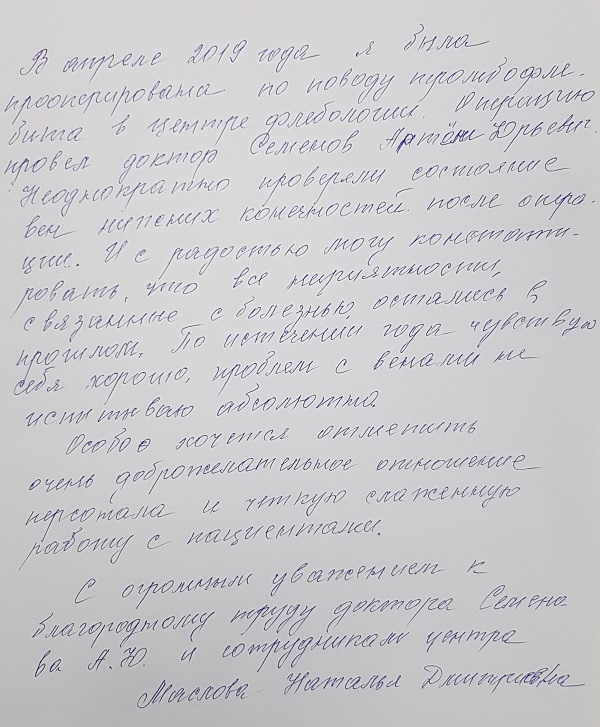 В апреле 2019 года я была
прооперирована по поводу тромбофле-
бита в центре флебологии. Операцию
провел доктор Семенов Антон Юрьевич.
Неоднократно проверяли состояние
вен нижних конечностей после опера-
ции. И с радостью могу констати-
ровать, что все неприятности,
связанные с болезнью, остались в
прошлом. По истечении года чувствую
себя хорошо, проблем с венами не
испытываю абсолютно.
Особо хочется отметить
очень доброжелательное отношение
персонала и чёткую слаженную
работу с пациентами.
С огромным уважением к
благородному труду доктора Семено-
ва А.Ю. и сотрудникам центра
Маслова Наталья Дмитриевна